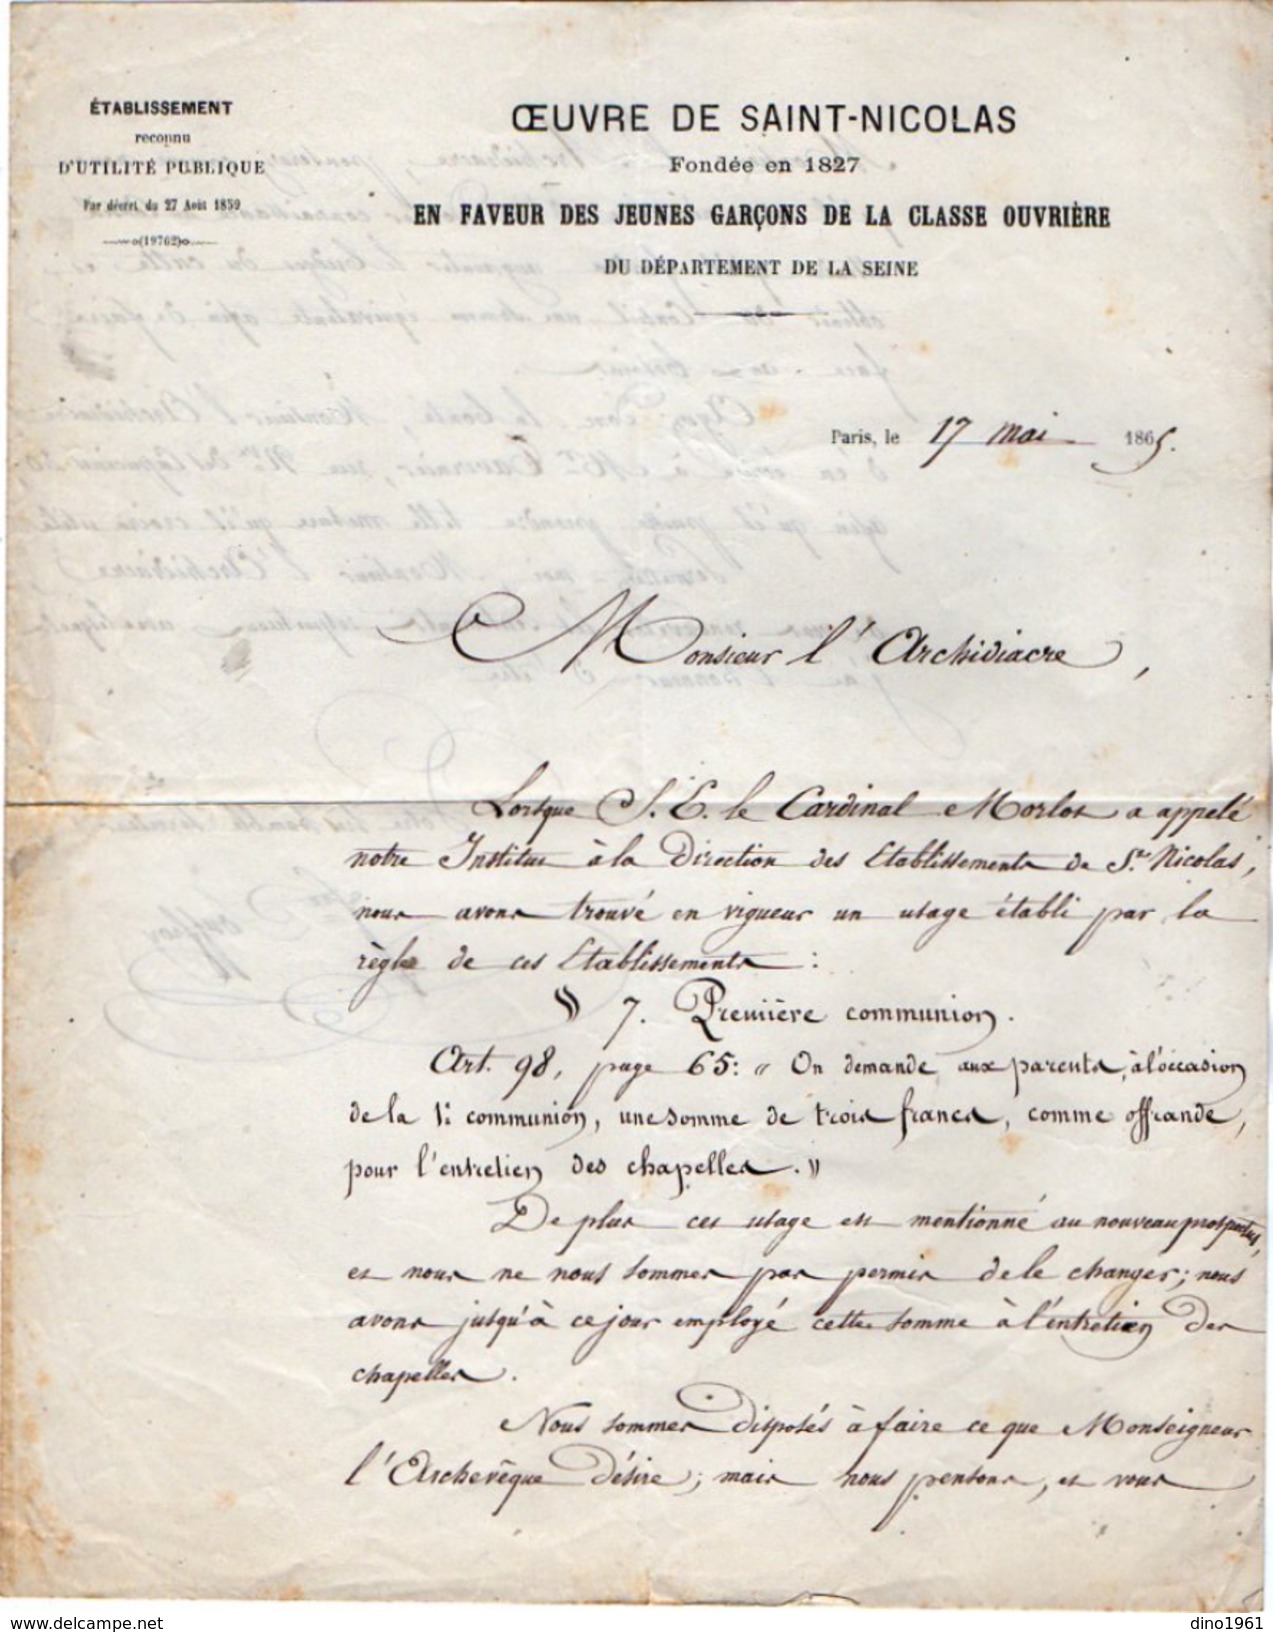 ÉTABLISSEMENT
reconnu
D'UTILITÉ PUBLIQUE
Par décret du 27 Août 1859
(19762)
ŒUVRE DE SAINT-NICOLAS
Fondée en 1827
EN FAVEUR DES JEUNES GARÇONS DE LA CLASSE OUVRIÈRE
DU DÉPARTEMENT DE LA SEINE
Paris, le 17 mai 1865.
Monsieur l'Archidiacre,
Lorsque S. E. le Cardinal Morlot a appelé
notre Institut à la Direction des Etablissements de St. Nicolas,
nous avons trouvé en vigueur un usage établi par la
règle de ces Etablissements :
§ 7. Première communion.
Art. 98, page 65: « On demande aux parents, à l'occasion
de la 1e communion, une somme de trois francs, comme offrande,
pour l'entretien des chapelles. »
De plus cet usage est mentionné au nouveau prospectus,
et nous ne nous sommes pas permis de le changer; nous
avons jusqu'à ce jour employé cette somme à l'entretien des
chapelles.
Nous sommes disposés à faire ce que Monseigneur
l'Archevêque désire; mais nous pensons, et vous
www.delcampe.net
dino1961